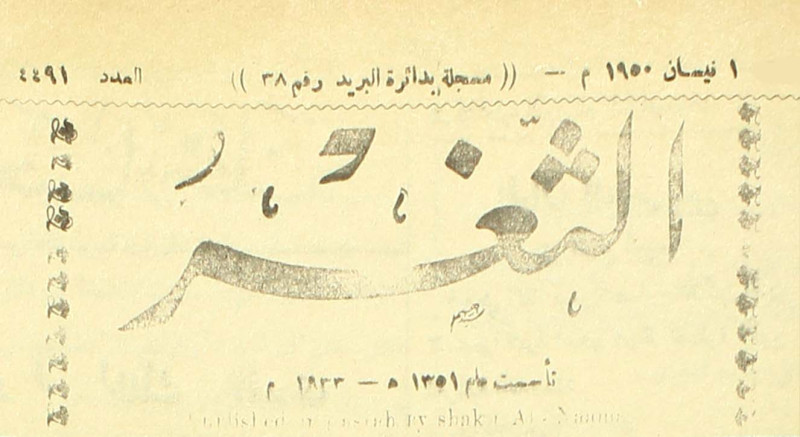 ١ نيسان ١٩٥٠ م — (( مسجلة بدائرة البريد رقم ٣٨ )) العدد ٤٤٩١
الثغر
تأسست عام ١٣٥١ ه — ١٩٣٣ م
by shaker Al - Naama